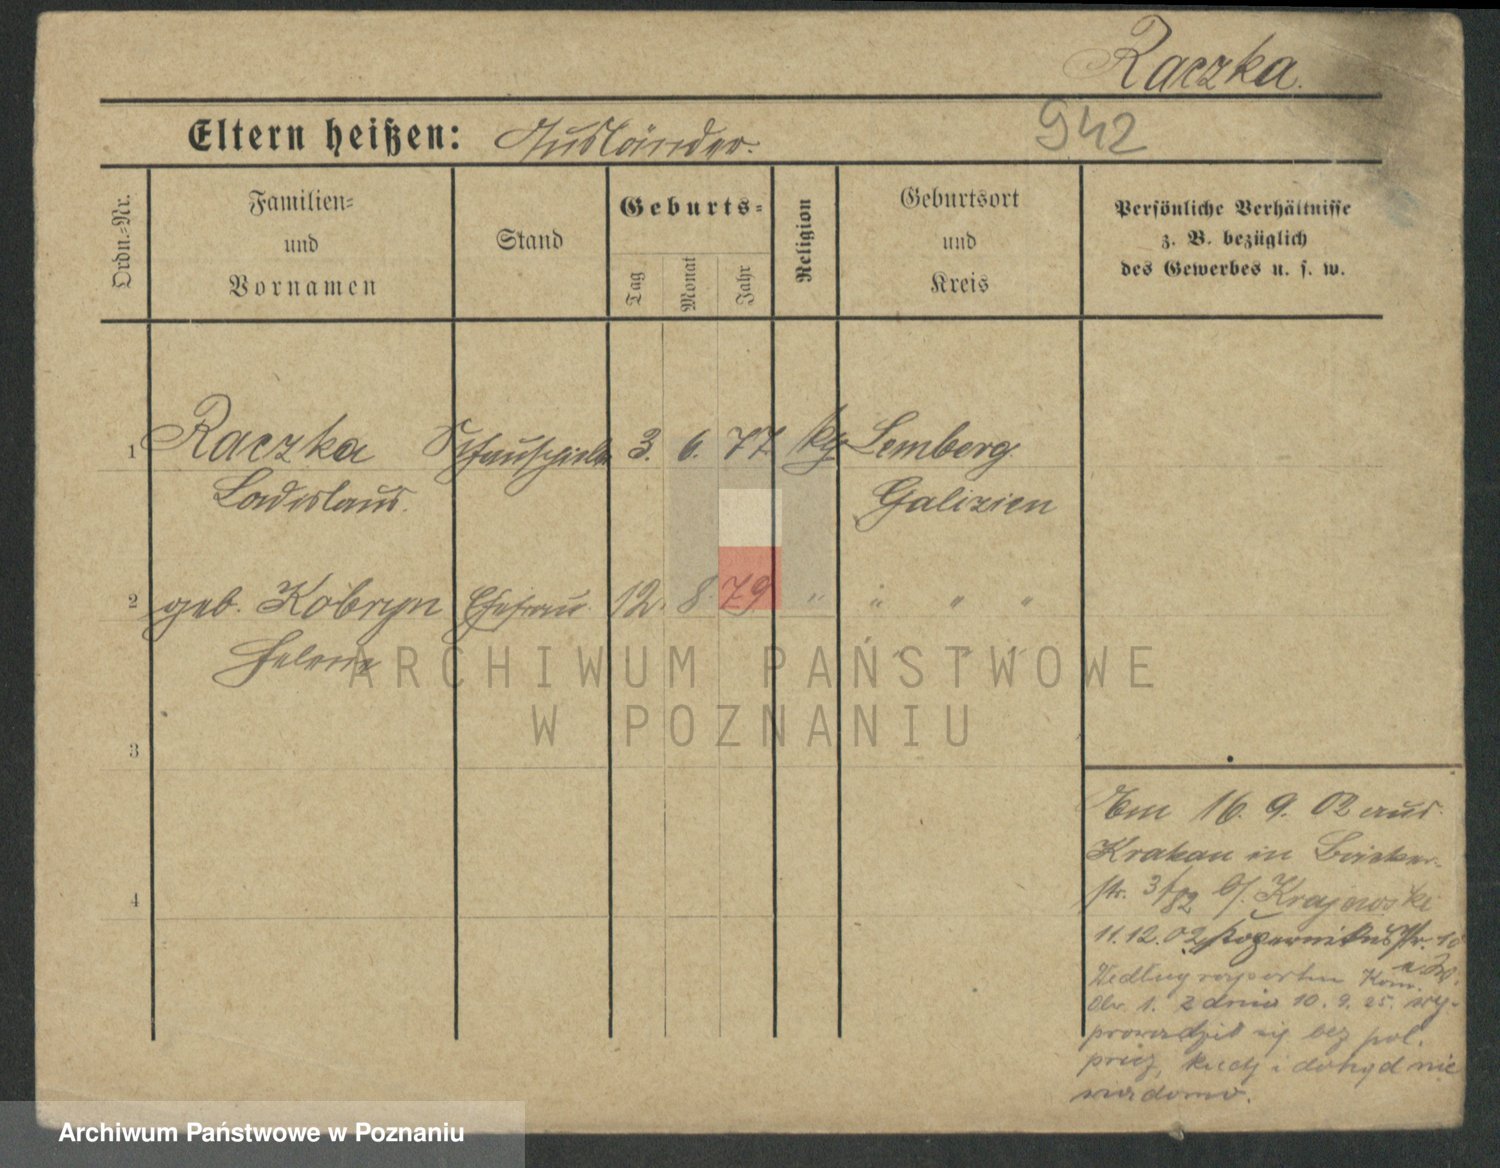 Raczka.
Eltern heißen: Ausländer.
942
Ordn.-Nr.
Familien-
und
Vornamen
Stand
Geburts-
Tag
Monat
Jahr
Religion
Geburtsort
und
Kreis
Persönliche Verhältnisse
z. B. bezüglich
des Gewerbes u. s. w.
1 Raczka Schauspieler 3. 6. 77. kg Lemberg
Ladislaus. Galizien
2 geb. Kobryn Ehefrau 12. 8. 79 " " " "
Helene
ARCHIWUM PAŃSTWOWE
W POZNANIU
3
4
Am 16. 9. 02 aus
Krakau in Bäcker-
str. 3/82 b/. Krajewski
11.12.02 Kopernikusstr. 10
Według raportu Kom.
Obw. 1. z dnia 10. 9. 25. wy-
prowadził się bez pol.
kiedy i dokąd nie
wiadomo.
Archiwum Państwowe w Poznaniu